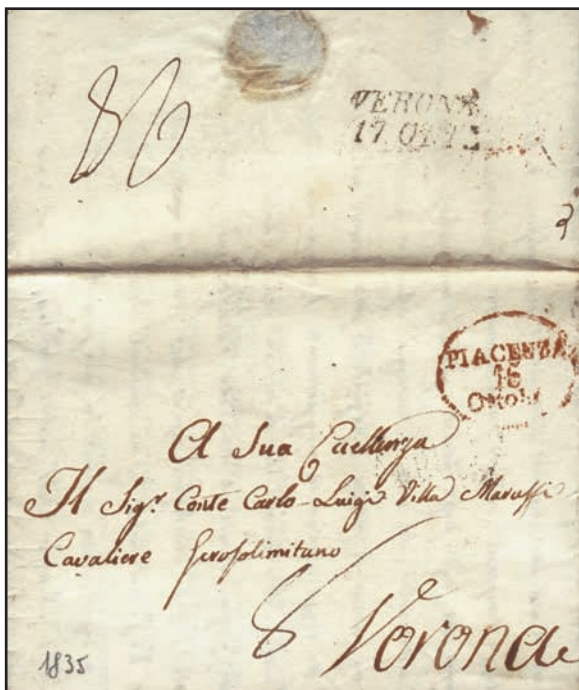 86
VERONA
17 OTT
PIACENZA
16
Ottobr
A Sua Eccellenza
Il Sigr. Conte Carlo-Luigi Villa Maruffi
Cavaliere Gerosolimitano
8 Verona
1835